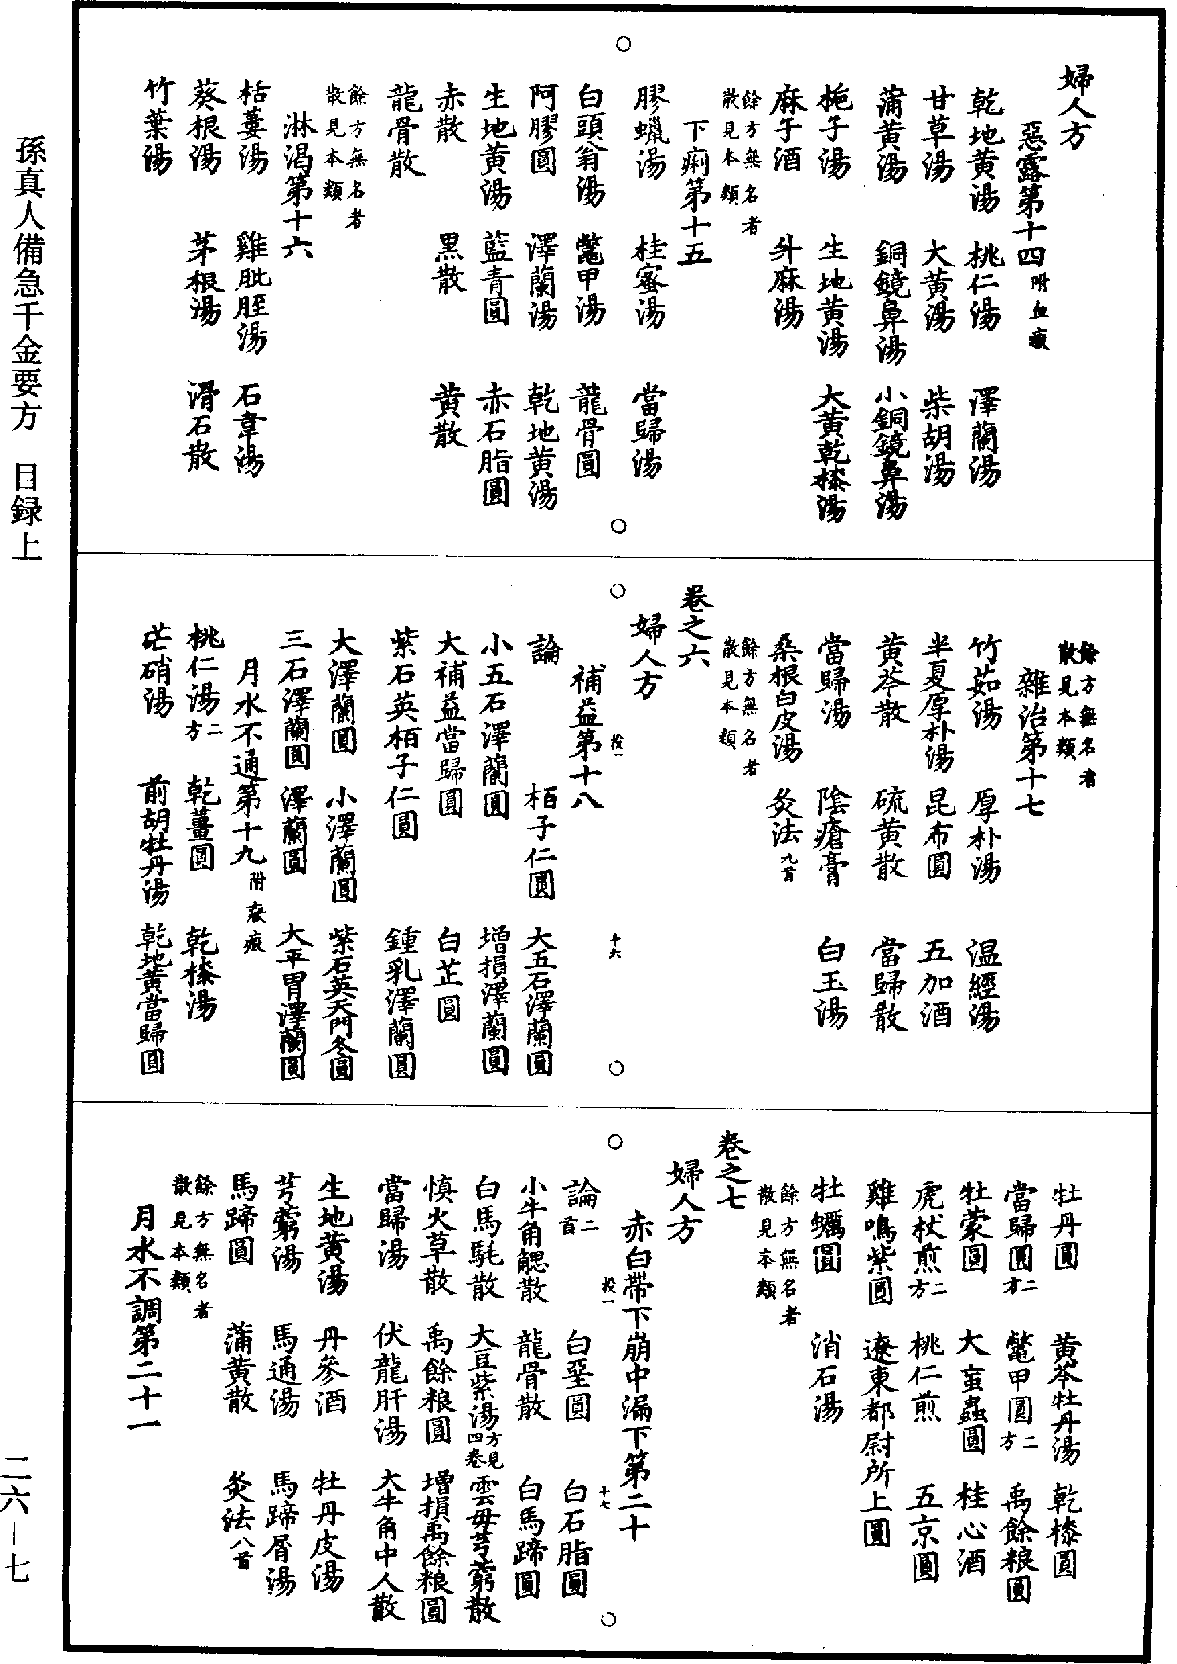 婦人方
惡露第十四附血瘕
乾地黄湯　桃仁湯　澤蘭湯
甘草湯　大黄湯　柴胡湯
蒲黄湯　銅鏡鼻湯　小銅鏡鼻湯
梔子湯　生地黄湯　大黄乾榛湯
麻子酒　升麻湯
餘方無名者
散見本類
下痢第十五
膠蠟湯　桂蜜湯　當歸湯
白頭翁湯　鼈甲湯　龍骨圓
阿膠圓　澤蘭湯　乾地黄湯
生地黄湯　藍青圓　赤石脂圓
赤散　黑散　黄散
龍骨散
餘方無名者
散見本類
淋渴第十六
栝蔞湯　雞肶胵湯　石韋湯
葵根湯　茅根湯　滑石散
竹葉湯
餘方無名者
散見本類
雜治第十七
竹茹湯　厚朴湯　温經湯
半夏厚朴湯　昆布圓　五加酒
黄芩散　硫黄散　當歸散
當歸湯　陰瘡膏　白玉湯
桑根白皮湯　灸法九首
餘方無名者
散見本類
卷之六
婦人方
投一　十六
補益第十八
論　柏子仁圓　大五石澤蘭圓
小五石澤蘭圓　增損澤蘭圓
大補益當歸圓　白芷圓
紫石英柏子仁圓　鍾乳澤蘭圓
大澤蘭圓　小澤蘭圓　紫石英天門冬圓
三石澤蘭圓　澤蘭圓　大平胃澤蘭圓
月水不通第十九附癥瘕
桃仁湯二方　乾薑圓　乾榛湯
芒硝湯　前胡牡丹湯　乾地黄當歸圓
牡丹圓　黄芩牡丹湯　乾榛圓
當歸圓二方　鼈甲圓二方　禹餘粮圓
牡蒙圓　大䖟蟲圓　桂心酒
虎杖煎二方　桃仁煎　五京圓
雞鳴紫圓　遼東都尉所上圓
牡蠣圓　消石湯
餘方無名者
散見本類
卷之七
婦人方
赤白帶下崩中漏下第二十
投一　十七
論二首　白堊圓　白石脂圓
小牛角䚡散　龍骨散　白馬蹄圓
白馬駞散　大豆紫湯方見四卷　雲母芎藭散
慎火草散　禹餘粮圓　增損禹餘粮圓
當歸湯　伏龍肝湯　大牛角中人散
生地黄湯　丹參酒　牡丹皮湯
芎藭湯　馬通湯　馬蹄屑湯
馬蹄圓　蒲黄散　灸法八首
餘方無名者
散見本類
月水不調第二十一
孫真人備急千金要方　目録上
二六—七